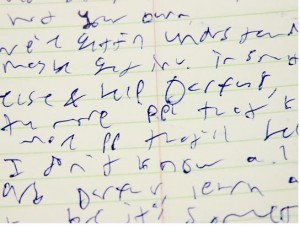 not your own
we're gettin understand
maybe get inv. in som
else & help Darfur,
the more ppl that k
more ppl they'll hel
I don't know a
Darfur learn a
be it's somet